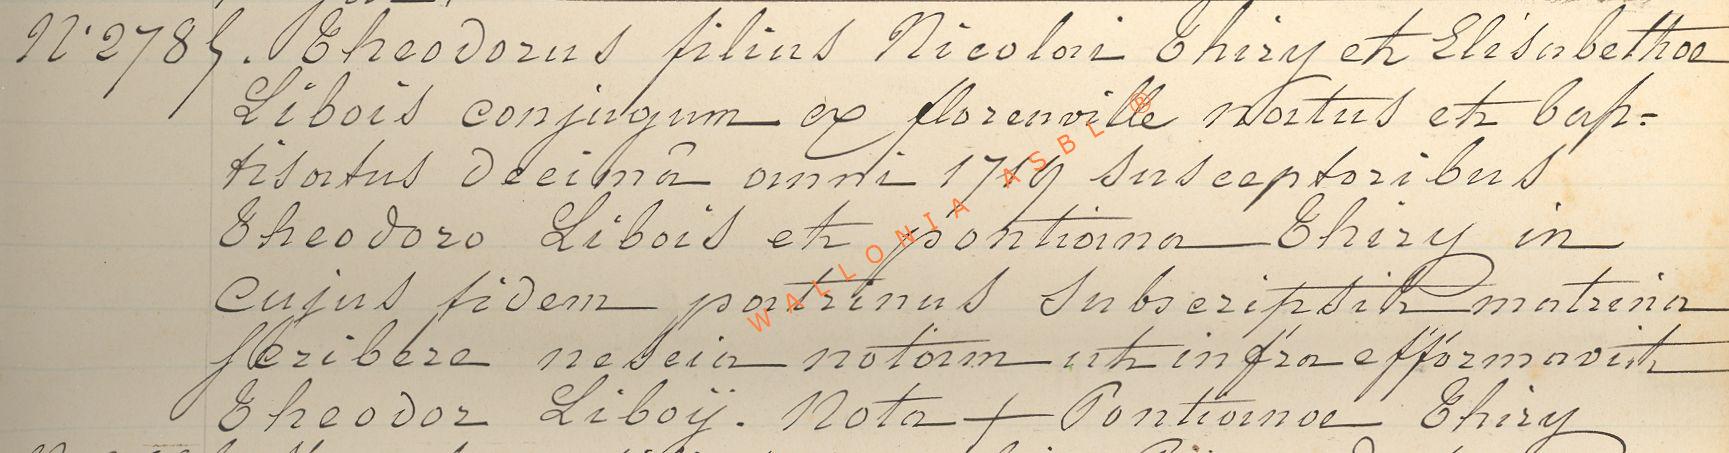 N° 2785. Theodorus filius Nicolai Thiry et Elisabethae
Libois conjugum ex florenville natus et bap-
tisatus decimâ anni 1719 susceptoribus
Theodoro Libois et pontiana Thiry in
cujus fidem patrinus subscripsit matrina
scribere nescia notam ut infra efformavit
Theodor Liboÿ. Nota + Pontianae Thiry
WALLONIA ASBL ®